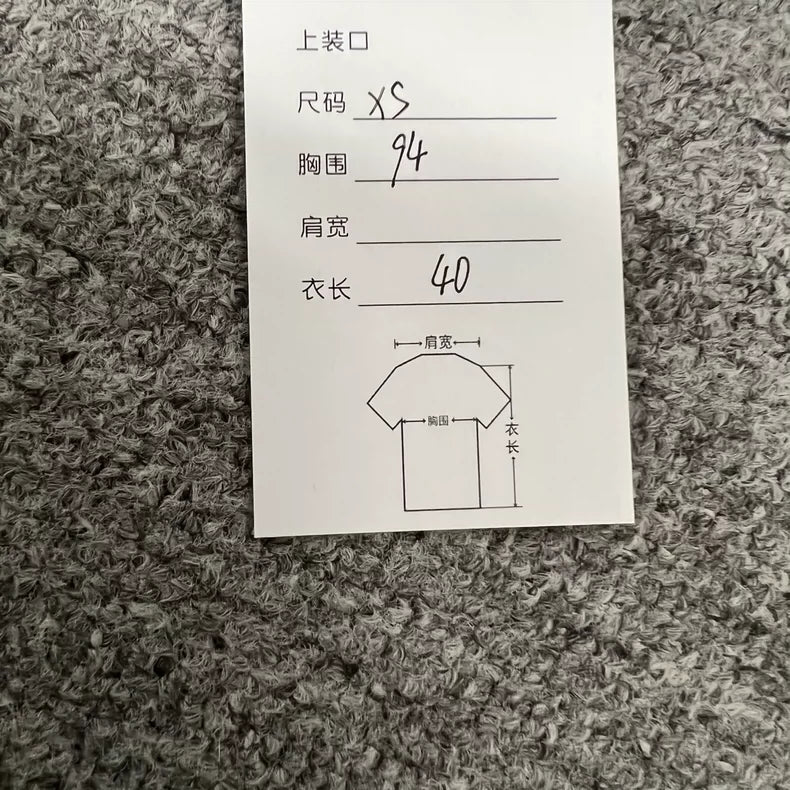 上装口
尺码 XS
胸围 94
肩宽
衣长 40
肩宽
胸围
衣长